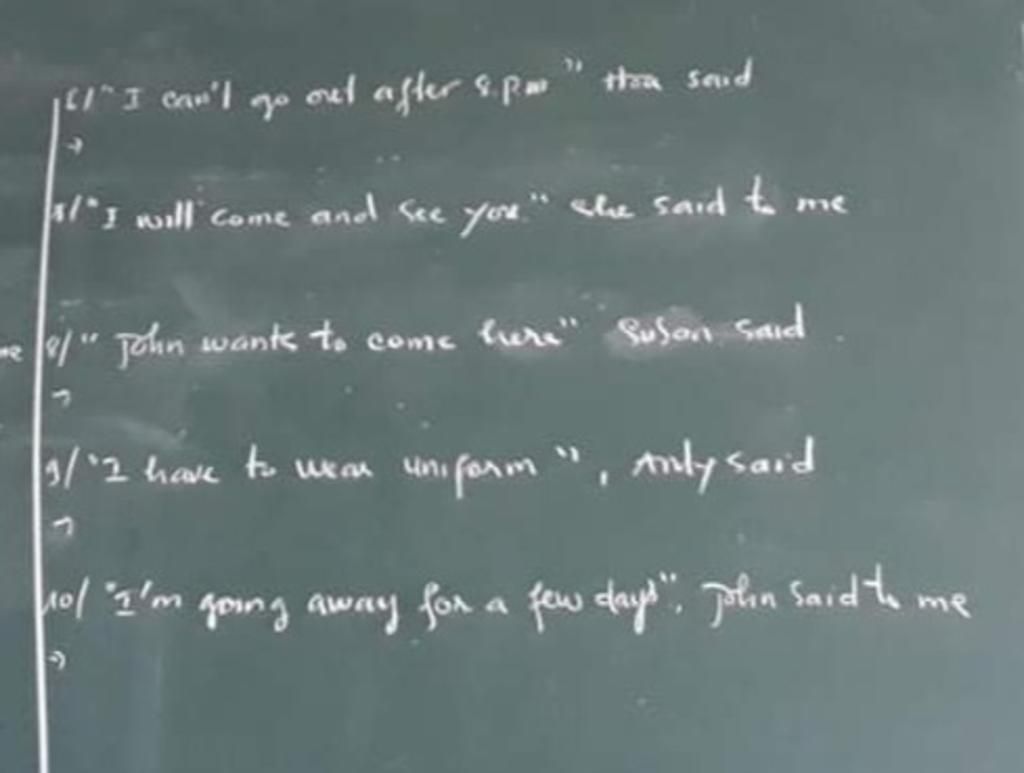 6/ "I can't go out after 8.pm" Hoa said
→
"I will come and see you" she said to me
8/ "John wants to come here" Suson said.
→
9/ "I have to wear uniform", Andy said
→
10/ "I'm going away for a few days", John said to me
→